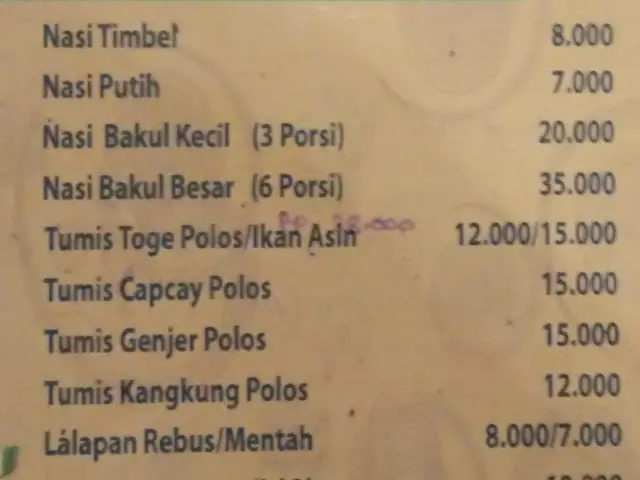 Nasi Timbel 8.000
Nasi Putih 7.000
Nasi Bakul Kecil (3 Porsi) 20.000
Nasi Bakul Besar (6 Porsi) 35.000
Tumis Toge Polos/Ikan Asin 12.000/15.000
Tumis Capcay Polos 15.000
Tumis Genjer Polos 15.000
Tumis Kangkung Polos 12.000
Lalapan Rebus/Mentah 8.000/7.000